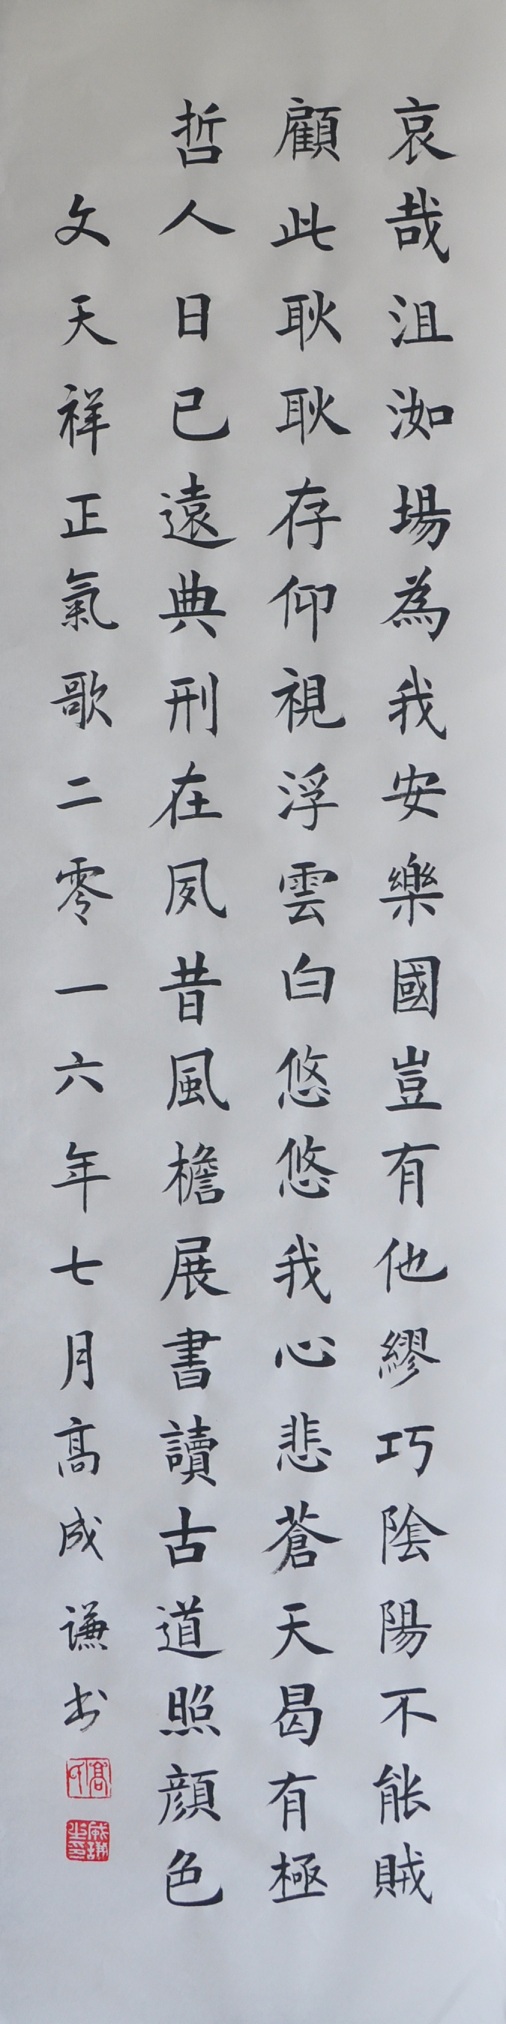 哀哉沮洳場為我安樂國豈有他繆巧陰陽不能賊
顧此耿耿存仰視浮雲白悠悠我心悲蒼天曷有極
哲人日已遠典刑在夙昔風檐展書讀古道照顏色
文天祥正氣歌二零一六年七月高成谦书